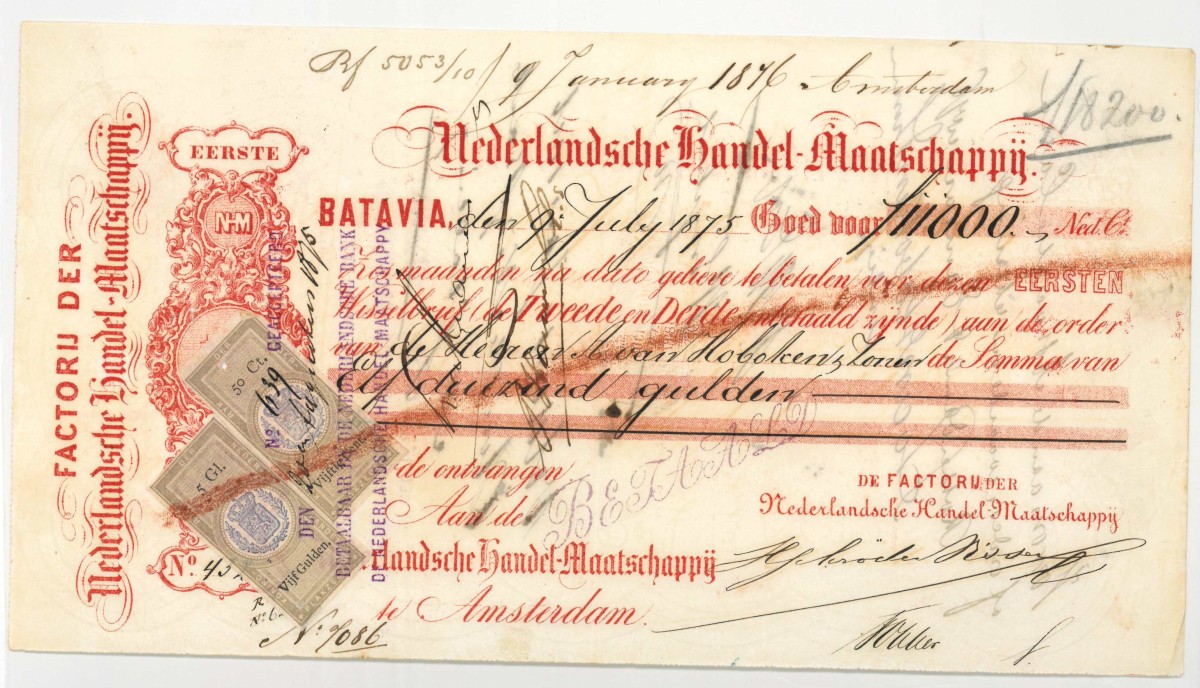 Rf 5053/10 9 January 1876 Amsterdam
f 18200.
FACTORIJ DER
Nederlandsche Handel-Maatschappij.
EERSTE
NHM
Nederlandsche Handel-Maatschappij.
BATAVIA, den 9 July 1875 Goed voor f 11000.- Ned. Ct.
maanden na dato gelieve te betalen voor dezen EERSTEN
Wisselbrief (de Tweede en Derde onbetaald zijnde) aan de order
van de Heeren A. van Hoboken & Zonen de Somma van
Elf duizend gulden
de ontvangen
Aan de
BETAALD
DE FACTORIJ DER
Nederlandsche Handel-Maatschappij
landsche Handel-Maatschappij
te Amsterdam.
50 Ct.
5 Gl.
Vijf Gulden.
No. 1639 GEACCEPTEERD
DEN
BETAALBAAR BIJ DE NEDERLANDSCHE BANK
DE NEDERLANDSCHE HANDEL MAATSCHAPPY
No.
No. 9/086